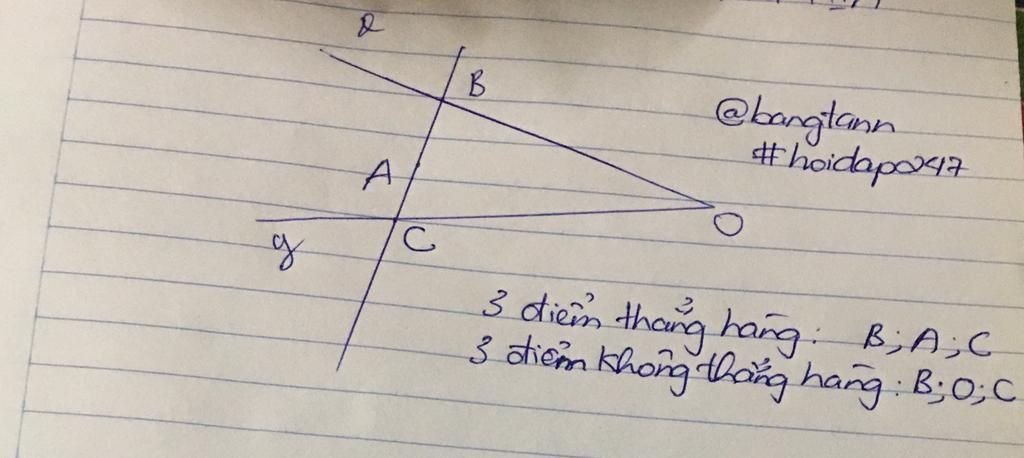 x
B
@bangtann
#hoidap247
A
O
y
C
3 điểm thẳng hàng: B; A; C
3 điểm không thẳng hàng: B; O; C